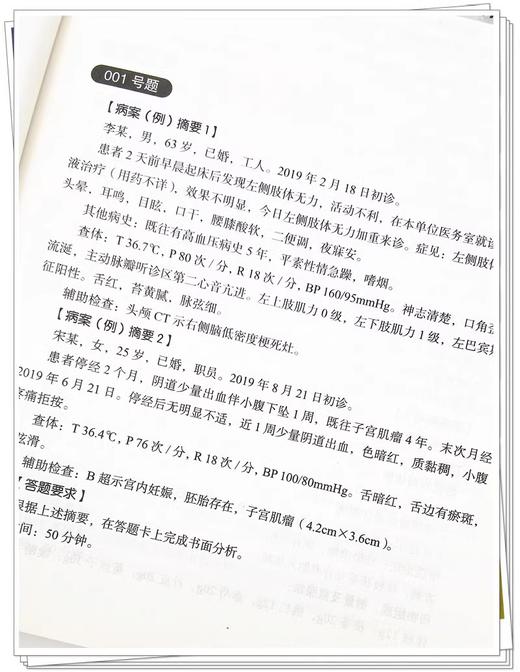 001 号题
【病案（例）摘要1】
李某，男，63 岁，已婚，工人。2019 年 2 月 18 日初诊。
患者 2 天前早晨起床后发现左侧肢体无力，活动不利，在本单位医务室就诊
液治疗（用药不详），效果不明显，今日左侧肢体无力加重来诊。症见：左侧肢体
头晕，耳鸣，目眩，口干，腰膝酸软，二便调，夜寐安。
其他病史：既往有高血压病史 5 年，平素性情急躁，嗜烟。
查体：T 36.7℃，P 80 次/分，R 18 次/分，BP 160/95mmHg。神志清楚，口角
流涎，主动脉瓣听诊区第二心音亢进。左上肢肌力 0 级，左下肢肌力 1 级，左巴宾
征阳性。舌红，苔黄腻，脉弦细。
辅助检查：头颅 CT 示右侧脑低密度梗死灶。
【病案（例）摘要2】
宋某，女，25 岁，已婚，职员。2019 年 8 月 21 日初诊。
患者停经 2 个月，阴道少量出血伴小腹下坠 1 周，既往子宫肌瘤 4 年。末次月经
2019 年 6 月 21 日。停经后无明显不适，近 1 周少量阴道出血，色暗红，质黏稠，小腹
疼痛拒按。
查体：T 36.4℃，P 76 次/分，R 18 次/分，BP 100/80mmHg。舌暗红，舌边有瘀斑，
弦滑。
辅助检查：B 超示宫内妊娠，胚胎存在，子宫肌瘤（4.2cm×3.6cm）。
【答题要求】
根据上述摘要，在答题卡上完成书面分析。
时间：50 分钟。